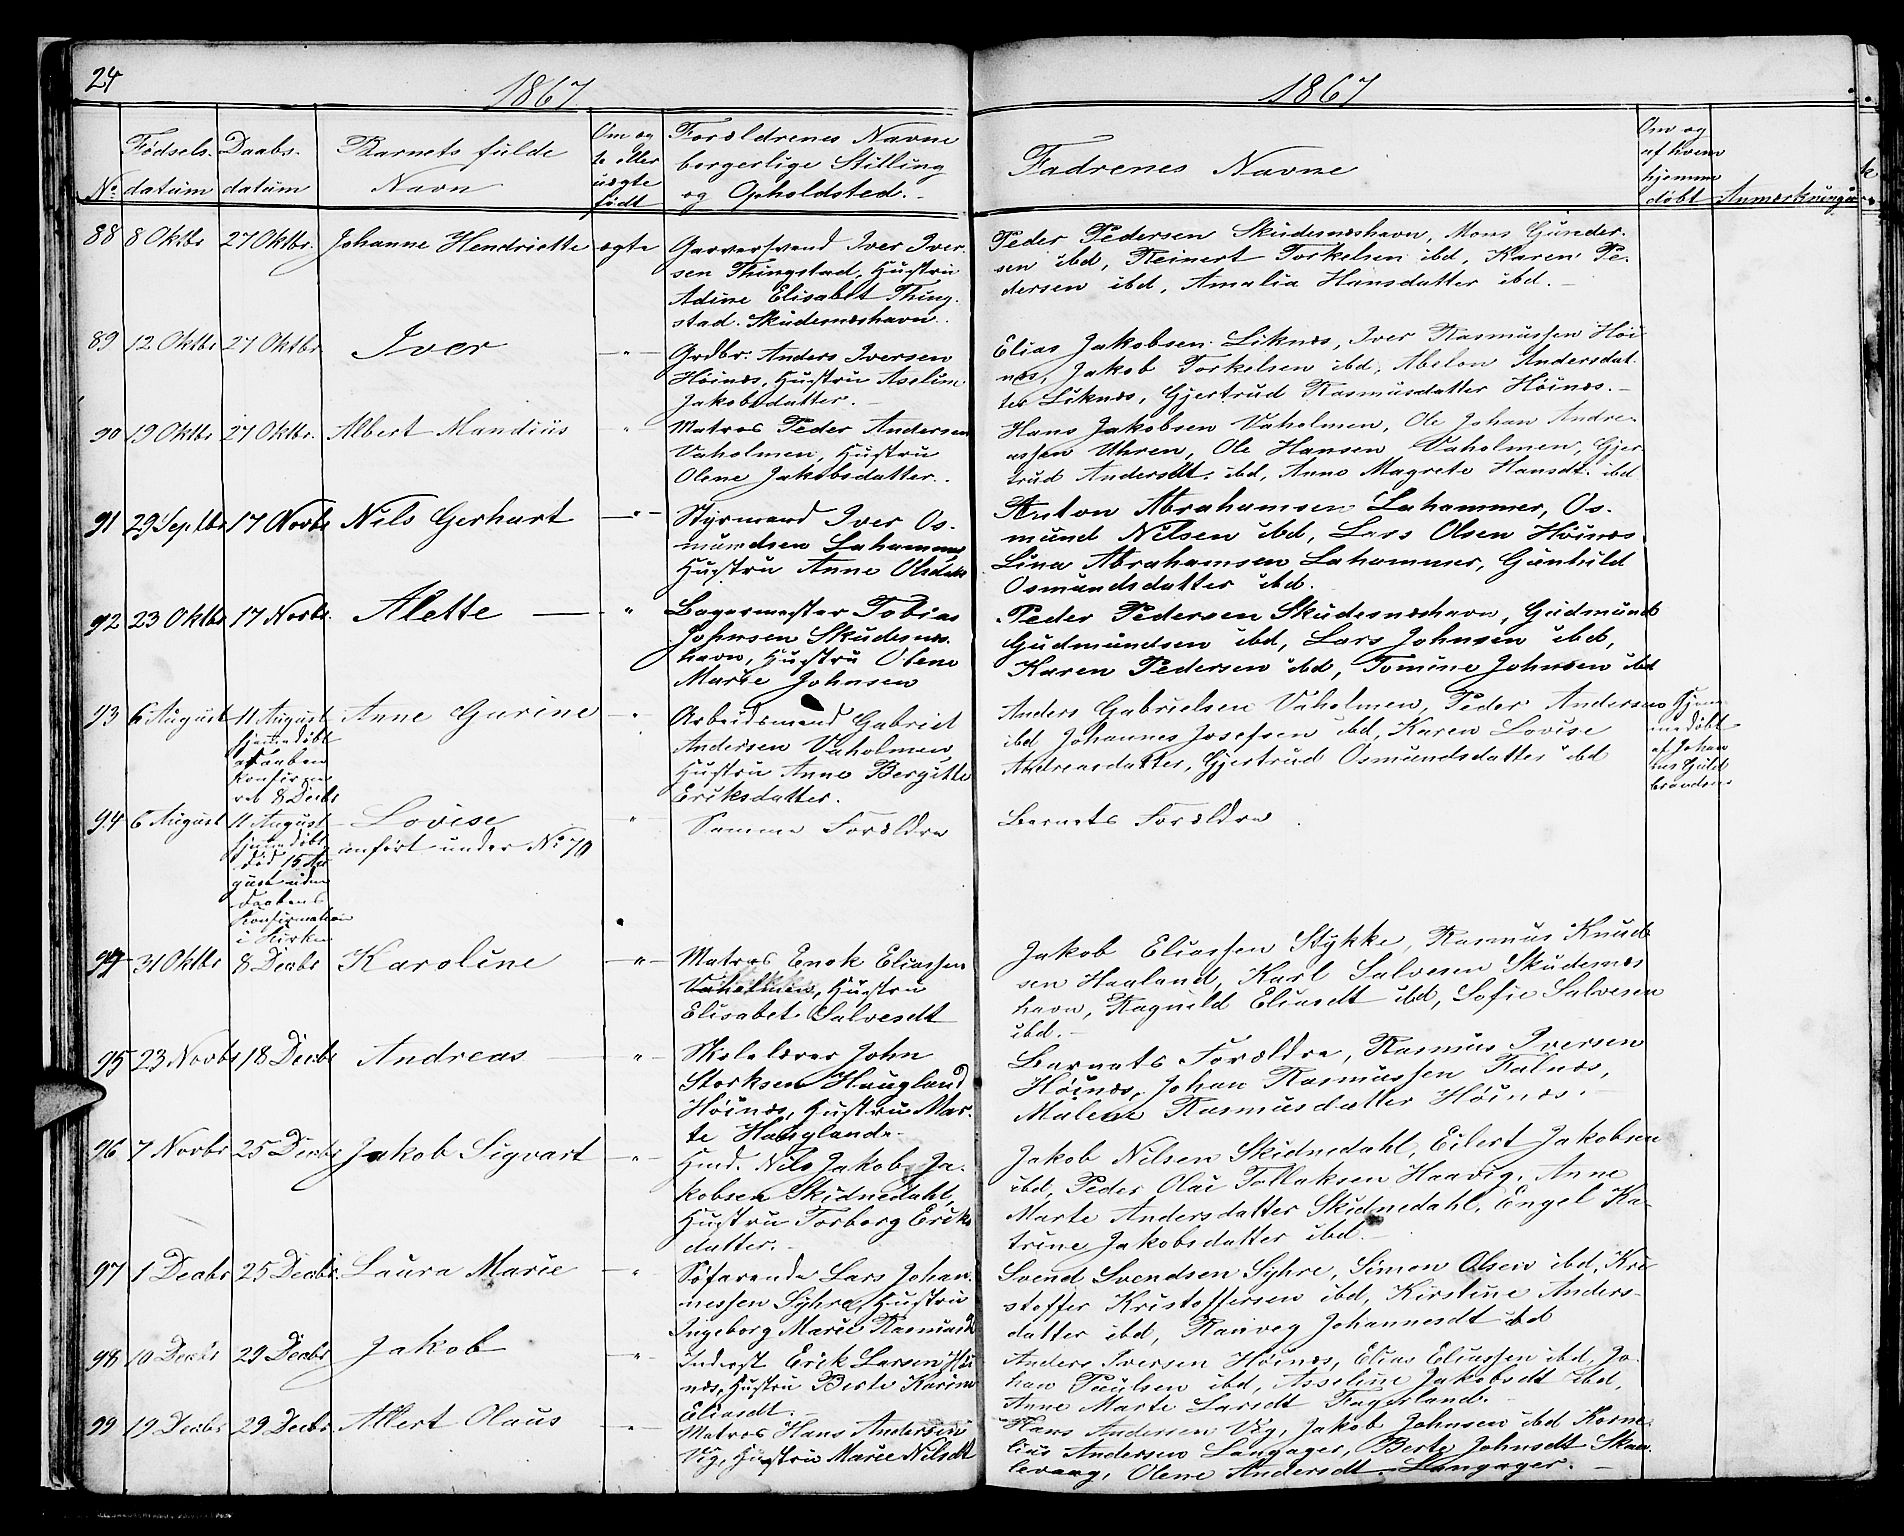 24
1867
1867
No
Fødsels-
datum
Daabs-
datum
Barnets fulde
Navn
Om æg
te eller
uægte
født
Forældrenes Navne
borgerlige Stilling
og Opholdsted.
Fadrenes Navne
Om og
af hvem
hjemme
døbt
Anmærkninger
88 8 Oktbr 27 Oktbr. Johanne Hendriette ægte
Garversvend Iver Iver-
sen Thingstad, Hustru
Adine Elisabet Thing-
stad. Skudesnæshavn.
Peder Pedersen Skudesnæshavn, Mons Gunder-
sen ibd, Reinert Torkelsen ibd, Karen Pe-
dersen ibd, Amalia Hansdatter ibd.
89 12 Oktbr 27 Oktbr Iver "
Grdbr. Anders Iversen
Høinæs, Hustru Aselin
Jakobsdatter.
Elias Jakobsen Liknæs, Iver Rasmussen Høi
næs, Jakob Torkelsen ibd, Abelon Andersdat-
ter Liknæs, Gjertrud Rasmusdatter Høinæs.
90 19 Oktbr 27 Oktbr. Albert Mandius "
Matros Peder Andersen
Vaholmen, Hustru
Olene Jakobsdatter.
Hans Jakobsen Vaholmen, Ole Johan Andre-
assen Uhren, Ole Hansen Vaholmen, Gjer
trud Andersdt. ibd, Anne Magrete Hansdt. ibd
91 29 Septbr 17 Novbr Nils Gerhart "
Styrmand Iver Os-
mundsen Lahammer
Hustru Anne Olsdatr
Anton Abrahamsen Lahammer, Os-
mund Nilsen ibd, Lars Olsen Høinæs
Lina Abrahamsen Lahammer, Gunhild
Osmundsdatter ibd.
92 23 Oktbr 17 Novbr. Alette "
Bagermester Tobias
Johnsen Skudesnæs-
havn, Hustru Olene
Marie Johnsen
Peder Pedersen Skudesnæshavn, Gudmund
Gudmundsen ibd, Lars Johnsen ibd,
Karen Pedersen ibd, Tomine Johnsen ibd
93 6 August 11 August Anne Gurine "
hjemmedøbt
daaben
Konfirme
ret 8 Decbr
Arbeidsmand Gabriel
Andersen Vaholmen
Hustru Anne Bergitte
Eriksdatter.
Anders Gabrielsen Vaholmen, Peder Andersen
ibd Johannes Josefsen ibd, Karen Lovise
Andreasdatter, Gjertrud Osmundsdatter ibd
Hjem
medøbt
af Johan
nes Guld
brandsen
94 6 August 11 August Lovise "
hjemdøbt
død 15 Au
gust uden
Daabens
Konfirmation
i Kirken
anført under No 70
Samme Forældre
Barnets Forældre
94 31 Oktbr 8 Decbr Karoline "
Matros Enok Eliassen
Vaholmen, Hustru
Elisabet Salvesdt
Jakob Eliassen Stykke, Rasmus Knud
sen Haaland, Karl Salvesen Skudesnæs
havn, Ragnild Eliasdt ibd, Sofie Salvesen
ibd.
95 23 Novbr 18 Decbr Andreas "
Skolelærer John
Storksen Haugland
Høinæs, Hustru Mar-
te Hauglande.
Barnets Forældre, Rasmus Iversen
Høinæs, Johan Rasmussen Falnæs,
Malene Rasmusdatter Høinæs.
96 7 Novbr 25 Decbr Jakob Sigvart "
Hmd. Nils Jakob Ja-
kobsen Skidnedahl,
Hustru Torborg Eriks
datter.
Jakob Nilsen Skidnedahl, Eilert Jakobsen
ibd, Peder Olai Tollaksen Haavig, Anne
Marte Andersdatter Skidnedahl, Engel Ka-
trine Jakobsdatter ibd.
97 1 Decbr 25 Decbr. Laura Marie "
Søfarende Lars Johan-
nessen Syhre, Hustru
Ingeborg Marie Rasmusdt
Svend Svendsen Syhre, Simon Olsen ibd, Kri-
stoffer Kristoffersen ibd, Kirstine Anders-
datter ibd, Ranveg Johannesdt ibd
98 10 Decbr 29 Decbr Jakob "
Inderst Erik Larsen Høi
næs, Hustru Berte Karine
Eliasdt.
Anders Iversen Høinæs, Elias Eliassen ibd, Jo-
han Paulsen ibd, Asseline Jakobsdt ibd,
Anne Marte Larsdt Fagerland.
99 19 Decbr 29 Decbr. Albert Olaus "
Matros Hans Andersen
Vig, Hustru Marie Nilsdt
Hans Andersen Vig, Jakob Johnsen ibd Korne-
lius Andersen Langager, Berte Johnsdt Skaa
levaag, Olene Andersdt Langager.